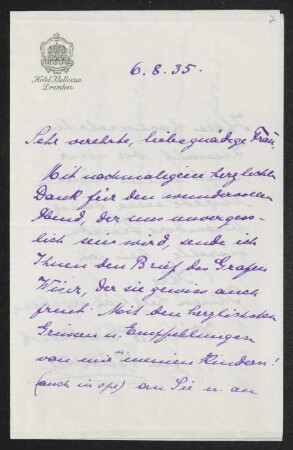 7
Hotel Bellevue
Dresden
6.8.35.
Sehr verehrte, liebe gnädige Frau,
Mit nochmaligem herzlichen
Dank für den wundervollen
Abend, der uns unverges-
lich sein wird, sende ich
Ihnen den Brief des Grafen
der sie gewiss auch
freut. Mit den herzlichsten
Grüssen u. Empfehlungen
von mir u. meinen Kindern!
(auch in spe) an Sie u. an